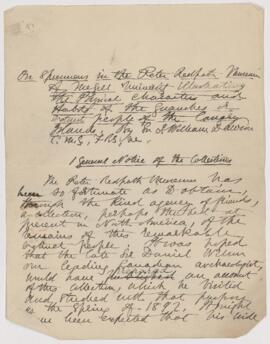 On Specimens in the Peter Redpath Museum
of McGill University illustrating
the Physical Characters and
Habits of the Guanches or
extinct people of the Canary
Islands. By Sir William Dawson
C.M.G., F.R.S. &c.
1 General Notice of the Collections
The Peter Redpath Museum has
been so fortunate as to obtain,
through the kind agency of friends,
a collection, perhaps unrivalled at
present in North America, of the
remains of this remarkable
extinct people. It was hoped
that the late Sir Daniel Wilson
our leading Canadian archaeologist,
would have an account
of the collection, which he visited
and studied with that purpose
in the Spring of 1892. It might
be expected that his wide